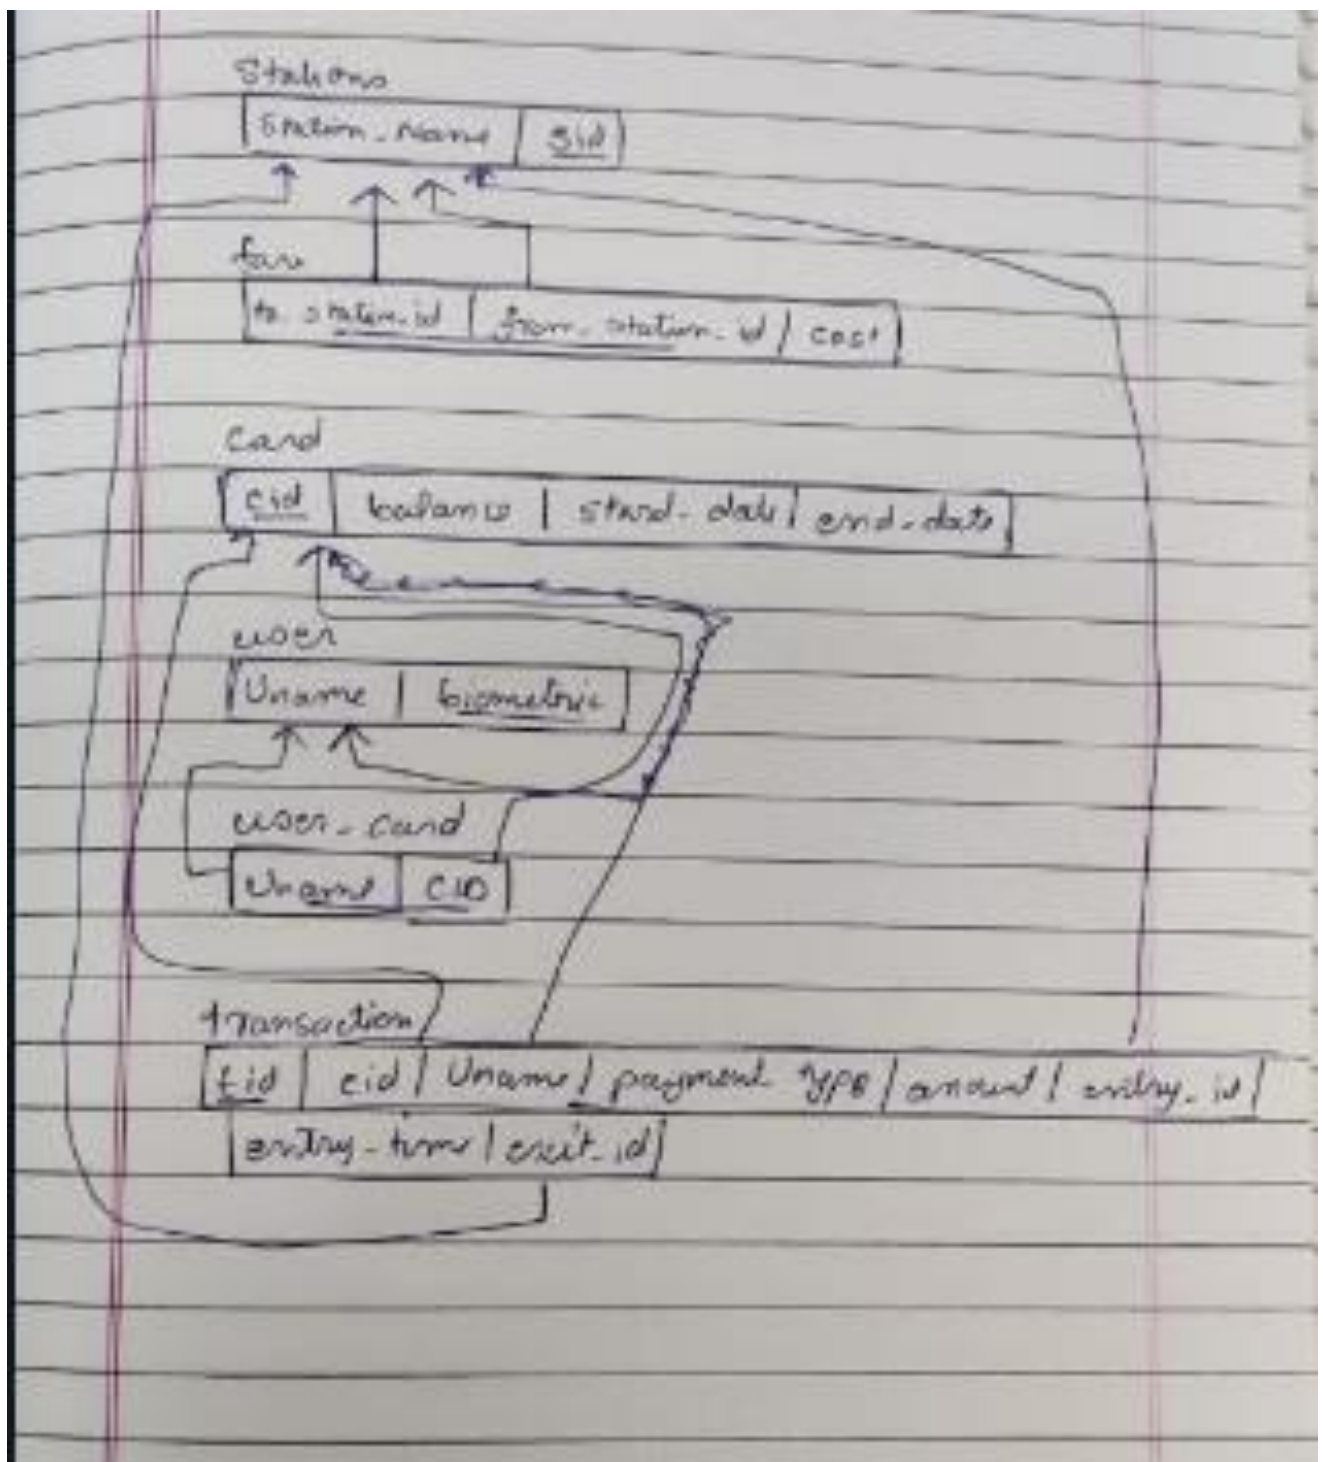 Stations
Station_Name | Sid
fare
to_station_id | from_station_id | cost
Card
Cid | balance | start_date | end_date
user
Uname | biometric
user_card
Uname | CID
transaction
tid | cid | Uname | payment type | amount | entry_id |
entry_time | exit_id